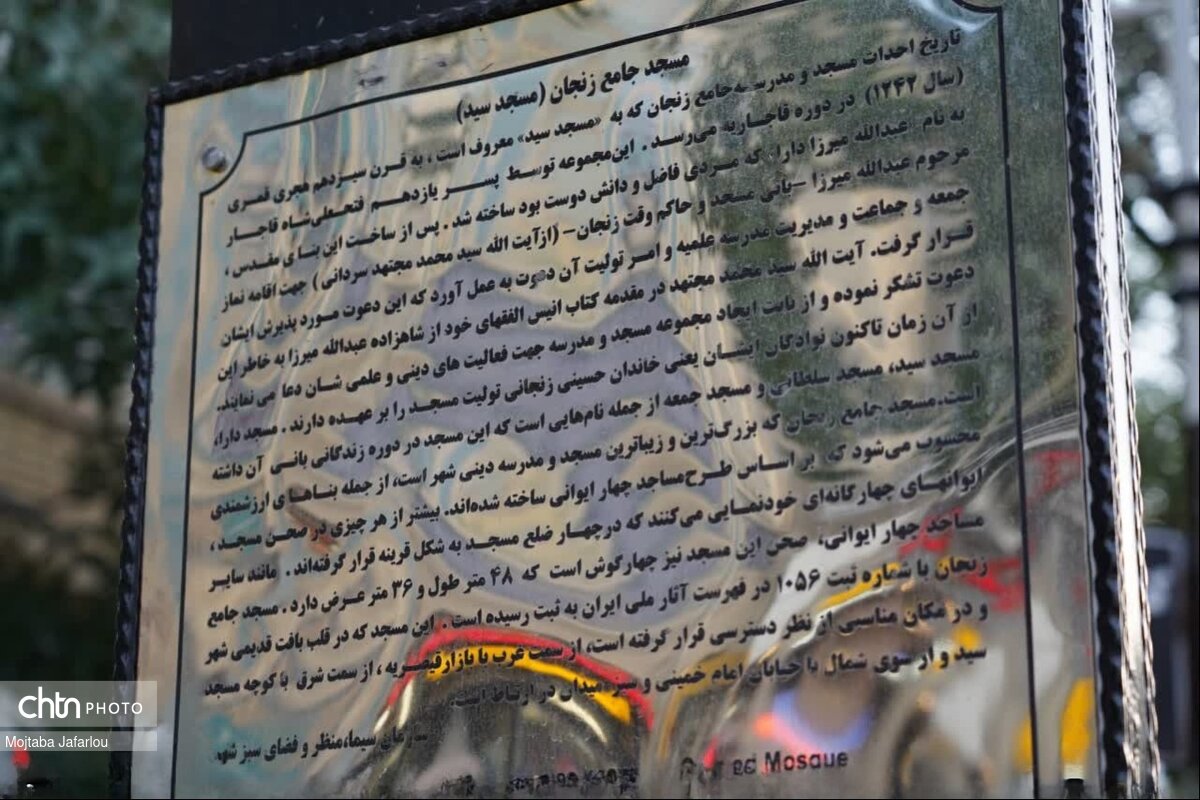 مسجد جامع زنجان (مسجد سید)
تاریخ احداث مسجد و مدرسه جامع زنجان که به «مسجد سید» معروف است، به قرن سیزدهم هجری قمری
(سال ۱۲۴۲) در دوره قاجاریه می‌رسد. این مجموعه توسط پسر یازدهم فتحعلی‌شاه قاجار
به نام عبدالله میرزا دارا، که مردی فاضل و دانش دوست بود ساخته شد. پس از ساخت این بنای مقدس،
مرحوم عبدالله میرزا -بانی مسجد و حاکم وقت زنجان- (ازآیت الله سید محمد مجتهد سردانی) جهت اقامه نماز
جمعه و جماعت و مدیریت مدرسه علمیه و امر تولیت آن دعوت به عمل آورد که این دعوت مورد پذیرش ایشان
قرار گرفت. آیت الله سید محمد مجتهد در مقدمه کتاب انیس الفقهای خود از شاهزاده عبدالله میرزا به خاطر این
دعوت تشکر نموده و از بابت ایجاد مجموعه مسجد و مدرسه جهت فعالیت های دینی و علمی شان دعا می نمایند.
از آن زمان تاکنون نوادگان ایشان یعنی خاندان حسینی زنجانی تولیت مسجد را بر عهده دارند. مسجد دارا،
مسجد سید، مسجد سلطانی و مسجد جمعه از جمله نام‌هایی است که این مسجد در دوره زندگانی بانی آن داشته
است.مسجد جامع زنجان که بزرگ‌ترین و زیباترین مسجد و مدرسه دینی شهر است، از جمله بناهای ارزشمندی
محسوب می‌شود که بر اساس طرح مساجد چهار ایوانی ساخته شده‌اند. بیشتر از هر چیزی در صحن مسجد،
ایوانهای چهارگانه‌ای خودنمایی می‌کنند که درچهار ضلع مسجد به شکل قرینه قرار گرفته‌اند. مانند سایر
مساجد چهار ایوانی، صحن این مسجد نیز چهارگوش است که ۴۸ متر طول و ۳۶ متر عرض دارد. مسجد جامع
زنجان با شماره ثبت ۱۰۵۶ در فهرست آثار ملی ایران به ثبت رسیده است. این مسجد که در قلب بافت قدیمی شهر
و در مکان مناسبی از نظر دسترسی قرار گرفته است، از سمت غرب با بازار قیصریه، از سمت شرق با کوچه مسجد
سید و از سوی شمال با خیابان امام خمینی و سبزه میدان در ارتباط است.
سازمان سیما،منظر و فضای سبز شهر
Mosque
chtn PHOTO
Mojtaba Jafarlou